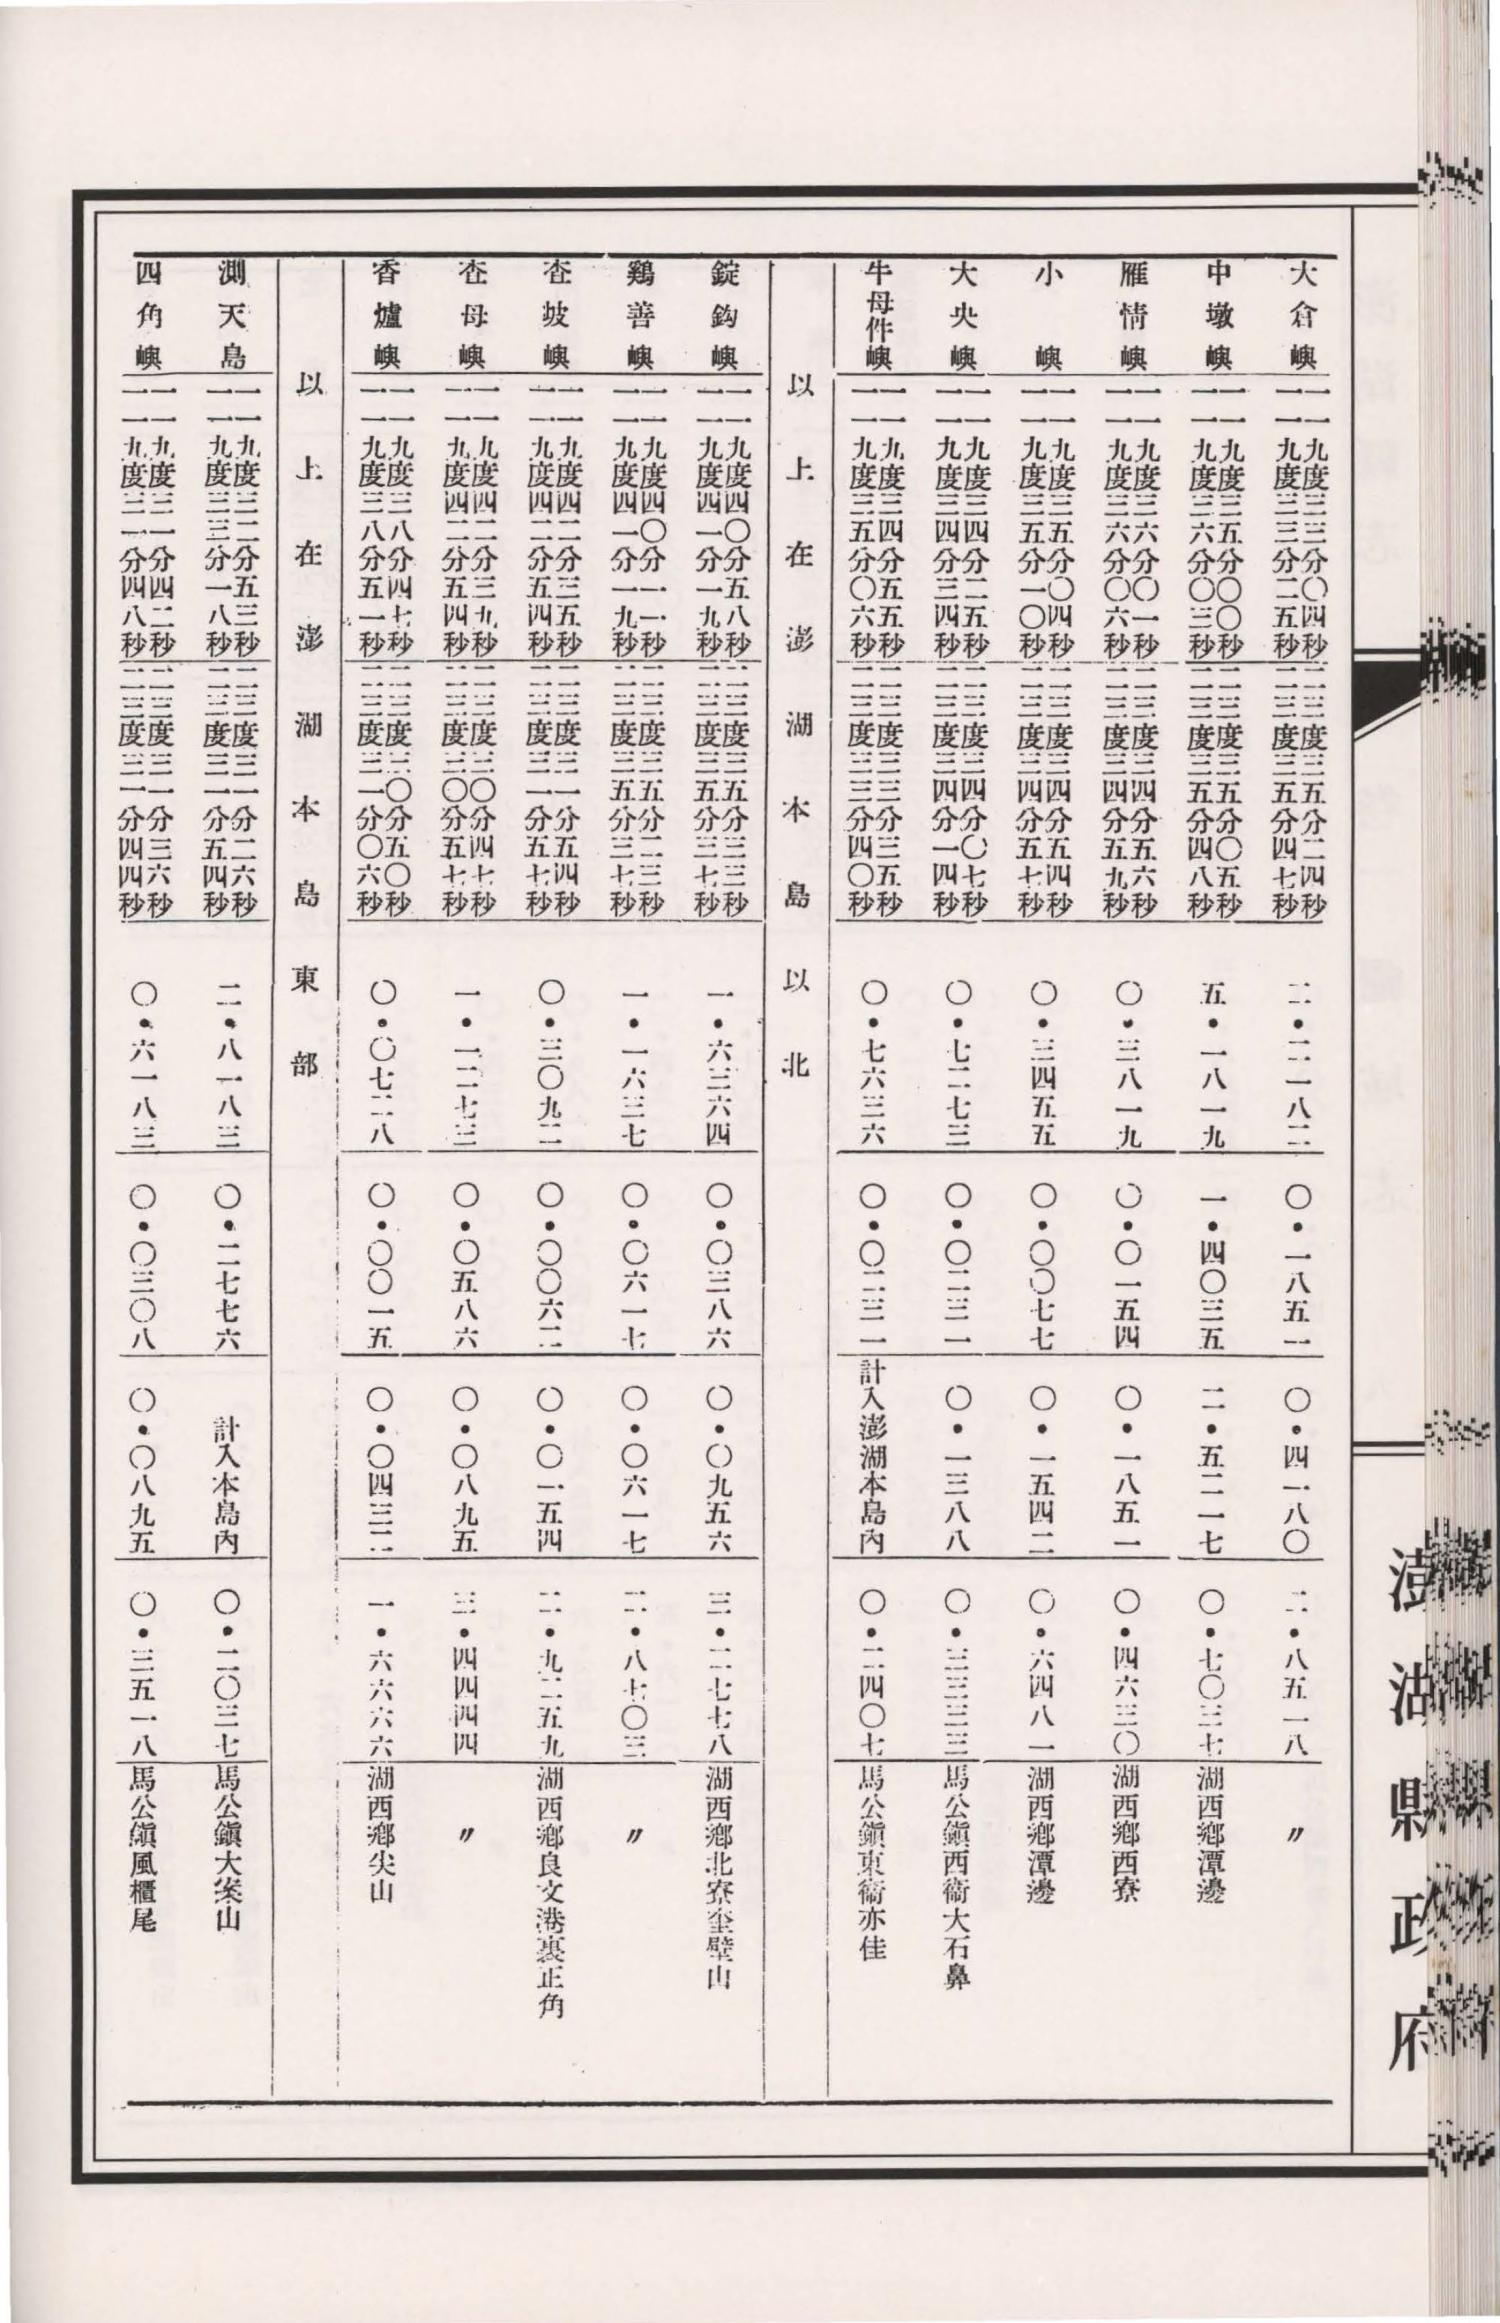 澎湖縣政府
大倉嶼 一一九度三三分〇四秒 一一九度三三分二五秒 二三度三五分二四秒 二三度三五分四七秒 二・二一八二 〇・一八五一 〇・四一八〇 二・八五一八 〃
中墩嶼 一一九度三五分〇〇秒 一一九度三六分〇三秒 二三度三五分〇五秒 二三度三五分四八秒 五・一八一九 一・四〇三五 二・五二一七 〇・七〇三七 湖西鄉潭邊
雁情嶼 一一九度三六分〇一秒 一一九度三六分〇六秒 二三度三四分五六秒 二三度三四分五九秒 〇・三八一九 〇・〇一五四 〇・一八五一 〇・四六三〇 湖西鄉西寮
小嶼 一一九度三五分〇四秒 一一九度三五分一〇秒 二三度三四分五四秒 二三度三四分五七秒 〇・三四五五 〇・〇〇七七 〇・一五四二 〇・六四八一 湖西鄉潭邊
大央嶼 一一九度三四分二五秒 一一九度三四分三四秒 二三度三四分〇七秒 二三度三四分一四秒 〇・七二七三 〇・〇二三一 〇・一三八八 〇・三三三三 馬公鎭西衞大石鼻
牛母件嶼 一一九度三四分五五秒 一一九度三五分〇六秒 二三度三三分三五秒 二三度三三分四〇秒 〇・七六三六 〇・〇二三一 計入澎湖本島內 〇・二四〇七 馬公鎭東衞亦佳
以上在澎湖本島以北
錠鈎嶼 一一九度四〇分五八秒 一一九度四一分一九秒 二三度三五分三三秒 二三度三五分三七秒 一・六三六四 〇・〇三八六 〇・〇九五六 三・二七七八 湖西鄉北寮奎壁山
鷄善嶼 一一九度四〇分一一秒 一一九度四一分一九秒 二三度三五分二三秒 二三度三五分三七秒 一・一六三七 〇・〇六一七 〇・〇六一七 二・八七〇三 〃
查坡嶼 一一九度四二分三五秒 一一九度四二分五四秒 二三度三一分五四秒 二三度三一分五七秒 〇・三〇九二 〇・〇〇六二 〇・〇一五四 二・九二五九 湖西鄉良文港裏正角
查母嶼 一一九度四二分三九秒 一一九度四二分五四秒 二三度三〇分四七秒 二三度三〇分五七秒 一・一二七三 〇・〇五八六 〇・〇八九五 三・四四四四 〃
香爐嶼 一一九度三八分四七秒 一一九度三八分五一秒 二三度三〇分五〇秒 二三度三一分〇六秒 〇・〇七二八 〇・〇〇一五 〇・〇四三二 一・六六六六 湖西鄉尖山
以上在澎湖本島東部
測天島 一一九度三二分五三秒 一一九度三三分一八秒 二三度三一分二六秒 二三度三一分五四秒 二・八一八三 〇・二七七六 計入本島內 〇・二〇三七 馬公鎭大案山
四角嶼 一一九度三一分四二秒 一一九度三一分四八秒 二三度三一分三六秒 二三度三一分四四秒 〇・六一八三 〇・〇三〇八 〇・〇八九五 〇・三五一八 馬公鎭風櫃尾